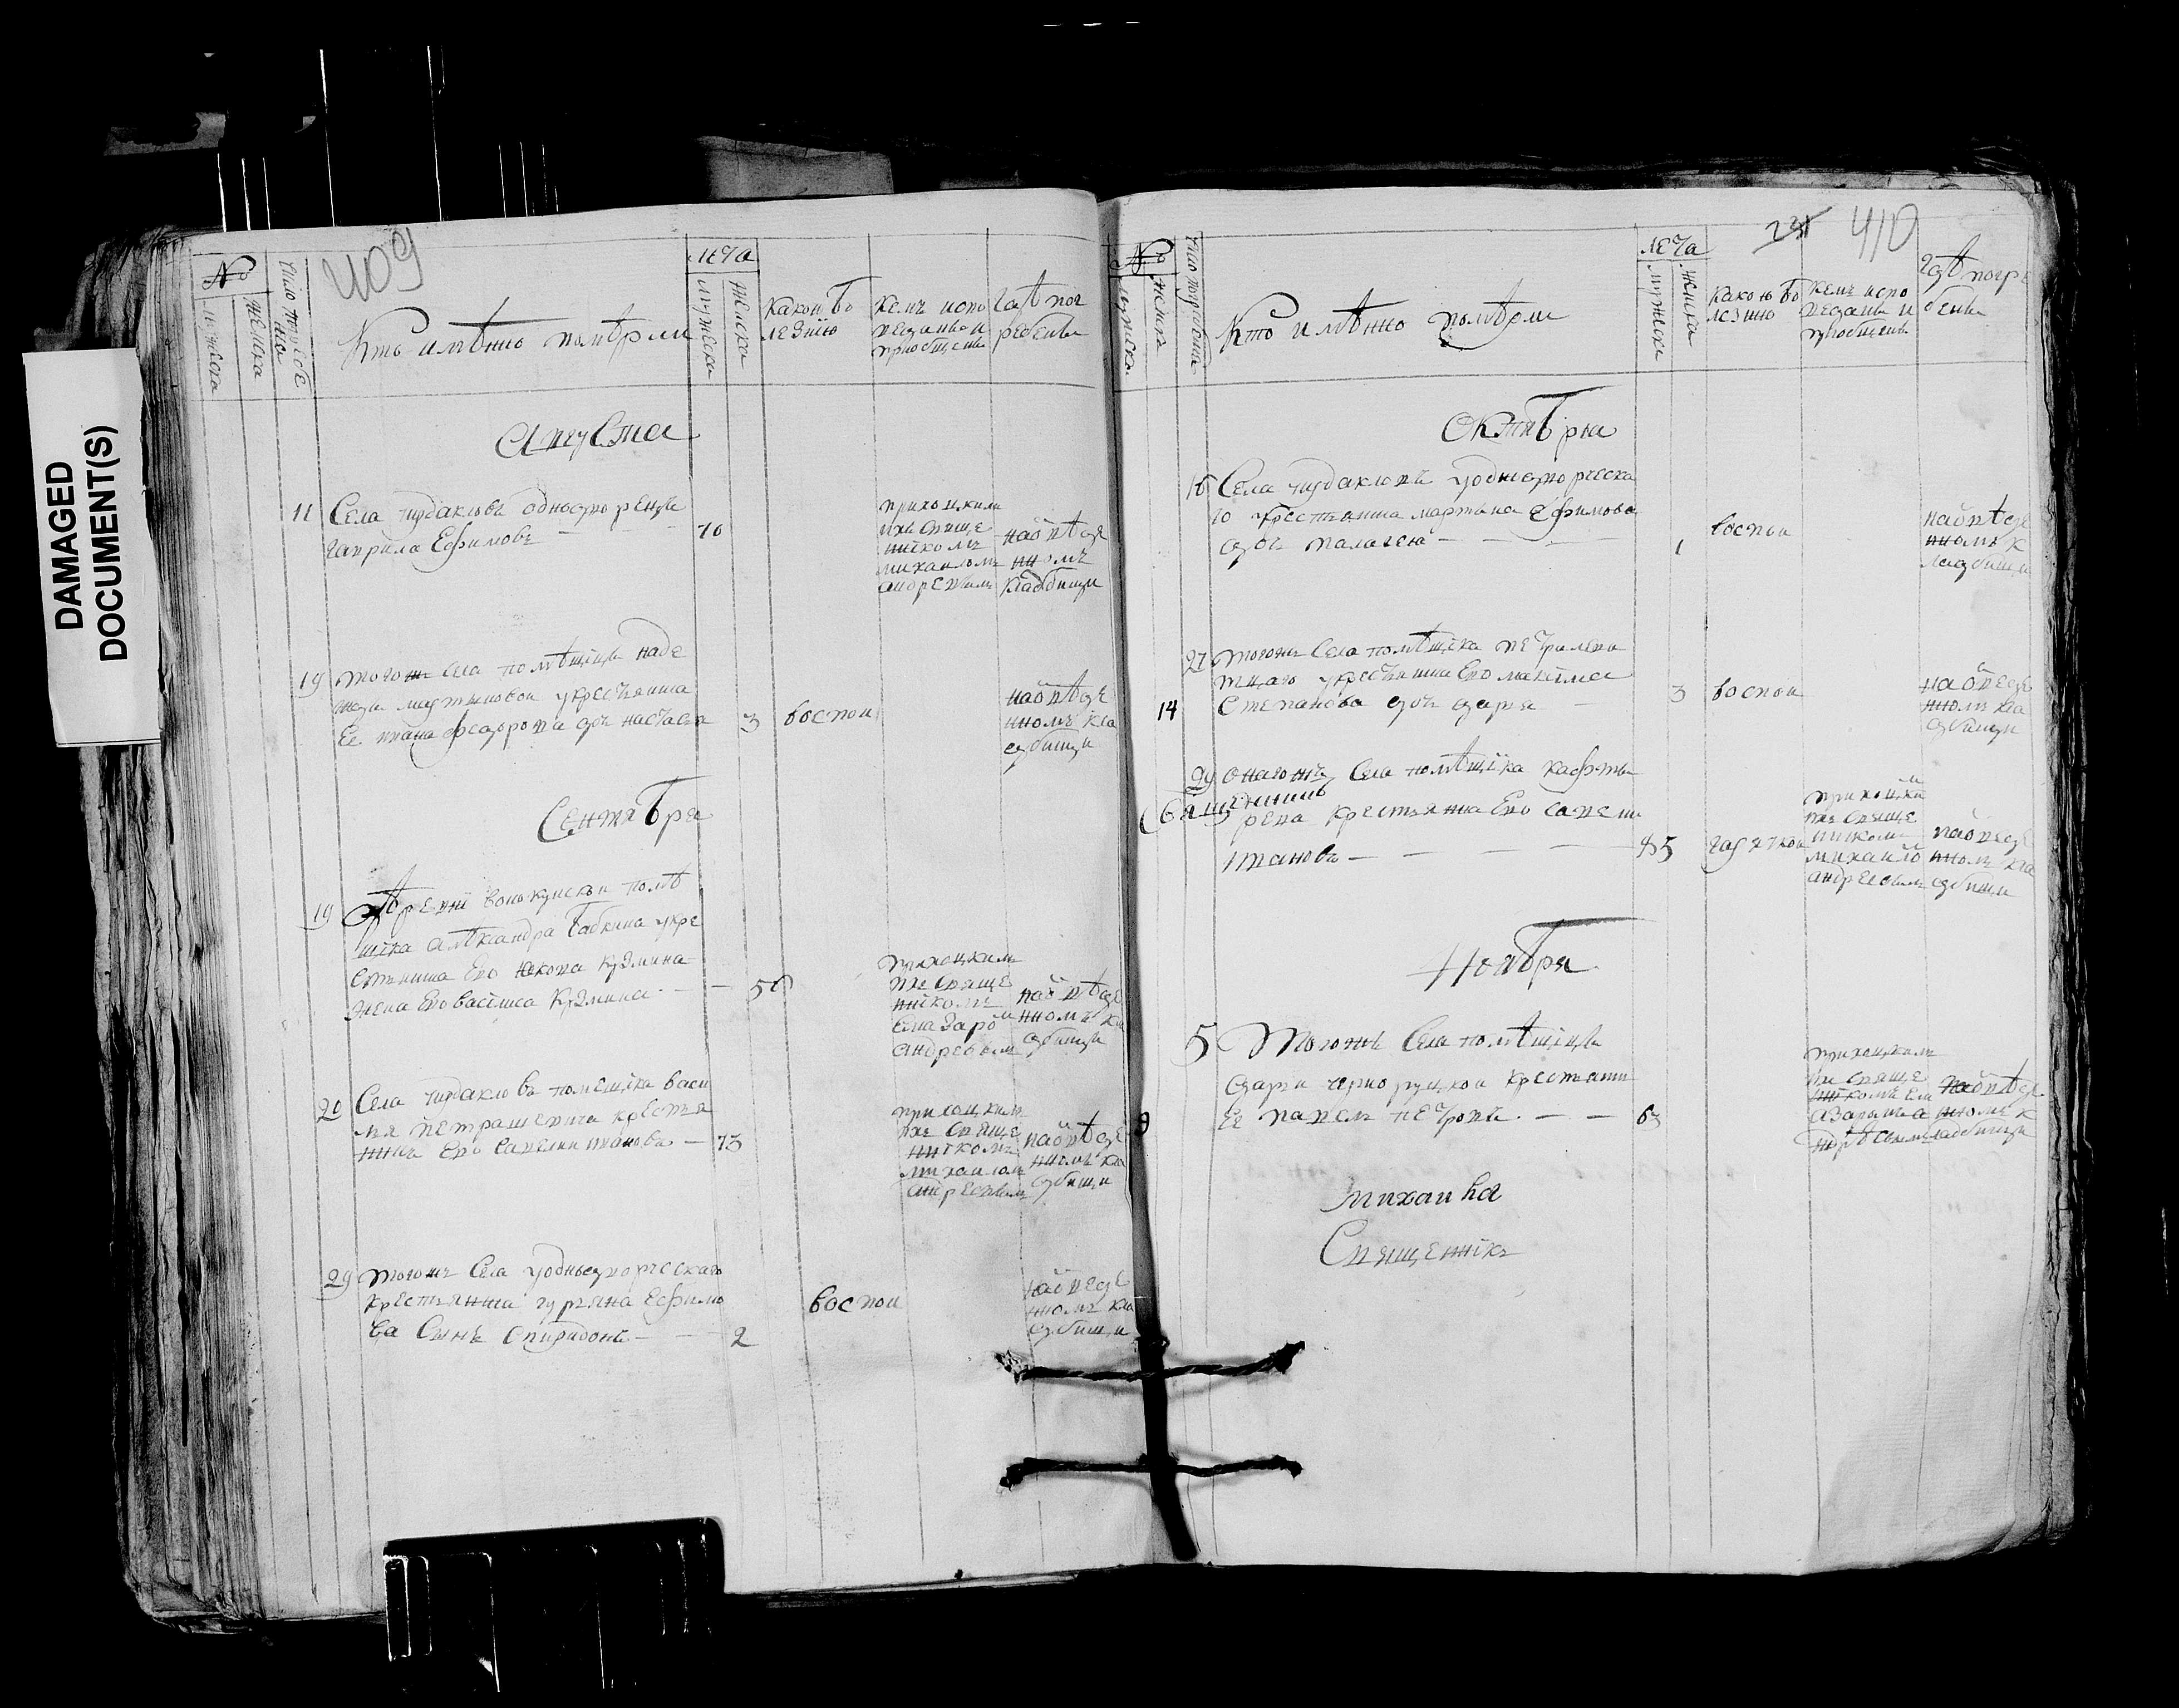 DAMAGED
DOCUMENT(S)
409
№
мужеска
женска
число погребе
нiю
Кто имѣнно помѣрли
лета
мужеска
женска
какою бо
лезнiю
кемъ испо
веданы и
приобщены
гдѣ пог
ребены
Августа
11 Села чудаклова однодворецъ
гаврила Ефимовъ — 70
приходжимъ
же свяще
нiкомъ
михаиломъ
андреевымъ
наотведе
нномъ
кладбищи
19 тогожъ села помѣщицы наде
жды мартыновой укрестьянина
Ее ивана федорова дочь настасья 3 воспой
наотведе
нномъ кла
дбищи
Сентября
19 деревнi помѣ
щiка алѣксандра бабкина укре
стьянина Его якова кузмина
жена Его василиса кузмина — 50
приходжимъ
же свяще
нiкомъ
елазаромъ
андревымъ
наотведе
нномъ кла
дбищи
20 Села чудакловъ помещiка васи
лья петрашевича крестья
нинъ Его савелии ивановъ — 73
приходжимъ
же свяще
нiкомъ
михаиломъ
андреевымъ
наотведе
нномъ кла
дбищи
29 тогожъ села уоднодворческаго
крестьянина гурьяна Ефимо
ва сынъ спиридонъ — 2
воспой
наотведе
нномъ кла
дбищи
231 410
№
мужеска
женска
число погребенiю
Кто имѣнно помѣрли
лета
мужеска
женска
какою бо
лезнiю
кемъ испо
веданы и
приобщены
гдѣ погре
бены
Октября
16 Села чудакловъ уоднодворческа
го крестьянина мартина Ефимова
дочь палагея — 1 воспой
наотведе
нномъ к
ладбищи
27 тогожъ села помѣщiка
укрестьянина Его максима
14 Степанова дочь дарья — 3 воспой
наотведе
нномъ кла
дбищи
29 онагожъ села помѣщiка
крестьянинъ Его савели
ивановъ — 85 гарячкой
приходжимъ
же свяще
нникомъ
михаиломъ
андреевымъ
наотведе
нномъ кла
дбищи
Ноября
5 Тогожъ села помѣщицы
дарьи черноруцкой крестьянинъ
9 Ее павелъ петровъ — 63
приходжимъ
же свяще
нiкомъ ел
азаромъ а
ндрѣевымъ
наотведе
нномъ к
ладбищи
михаила
Священiкъ